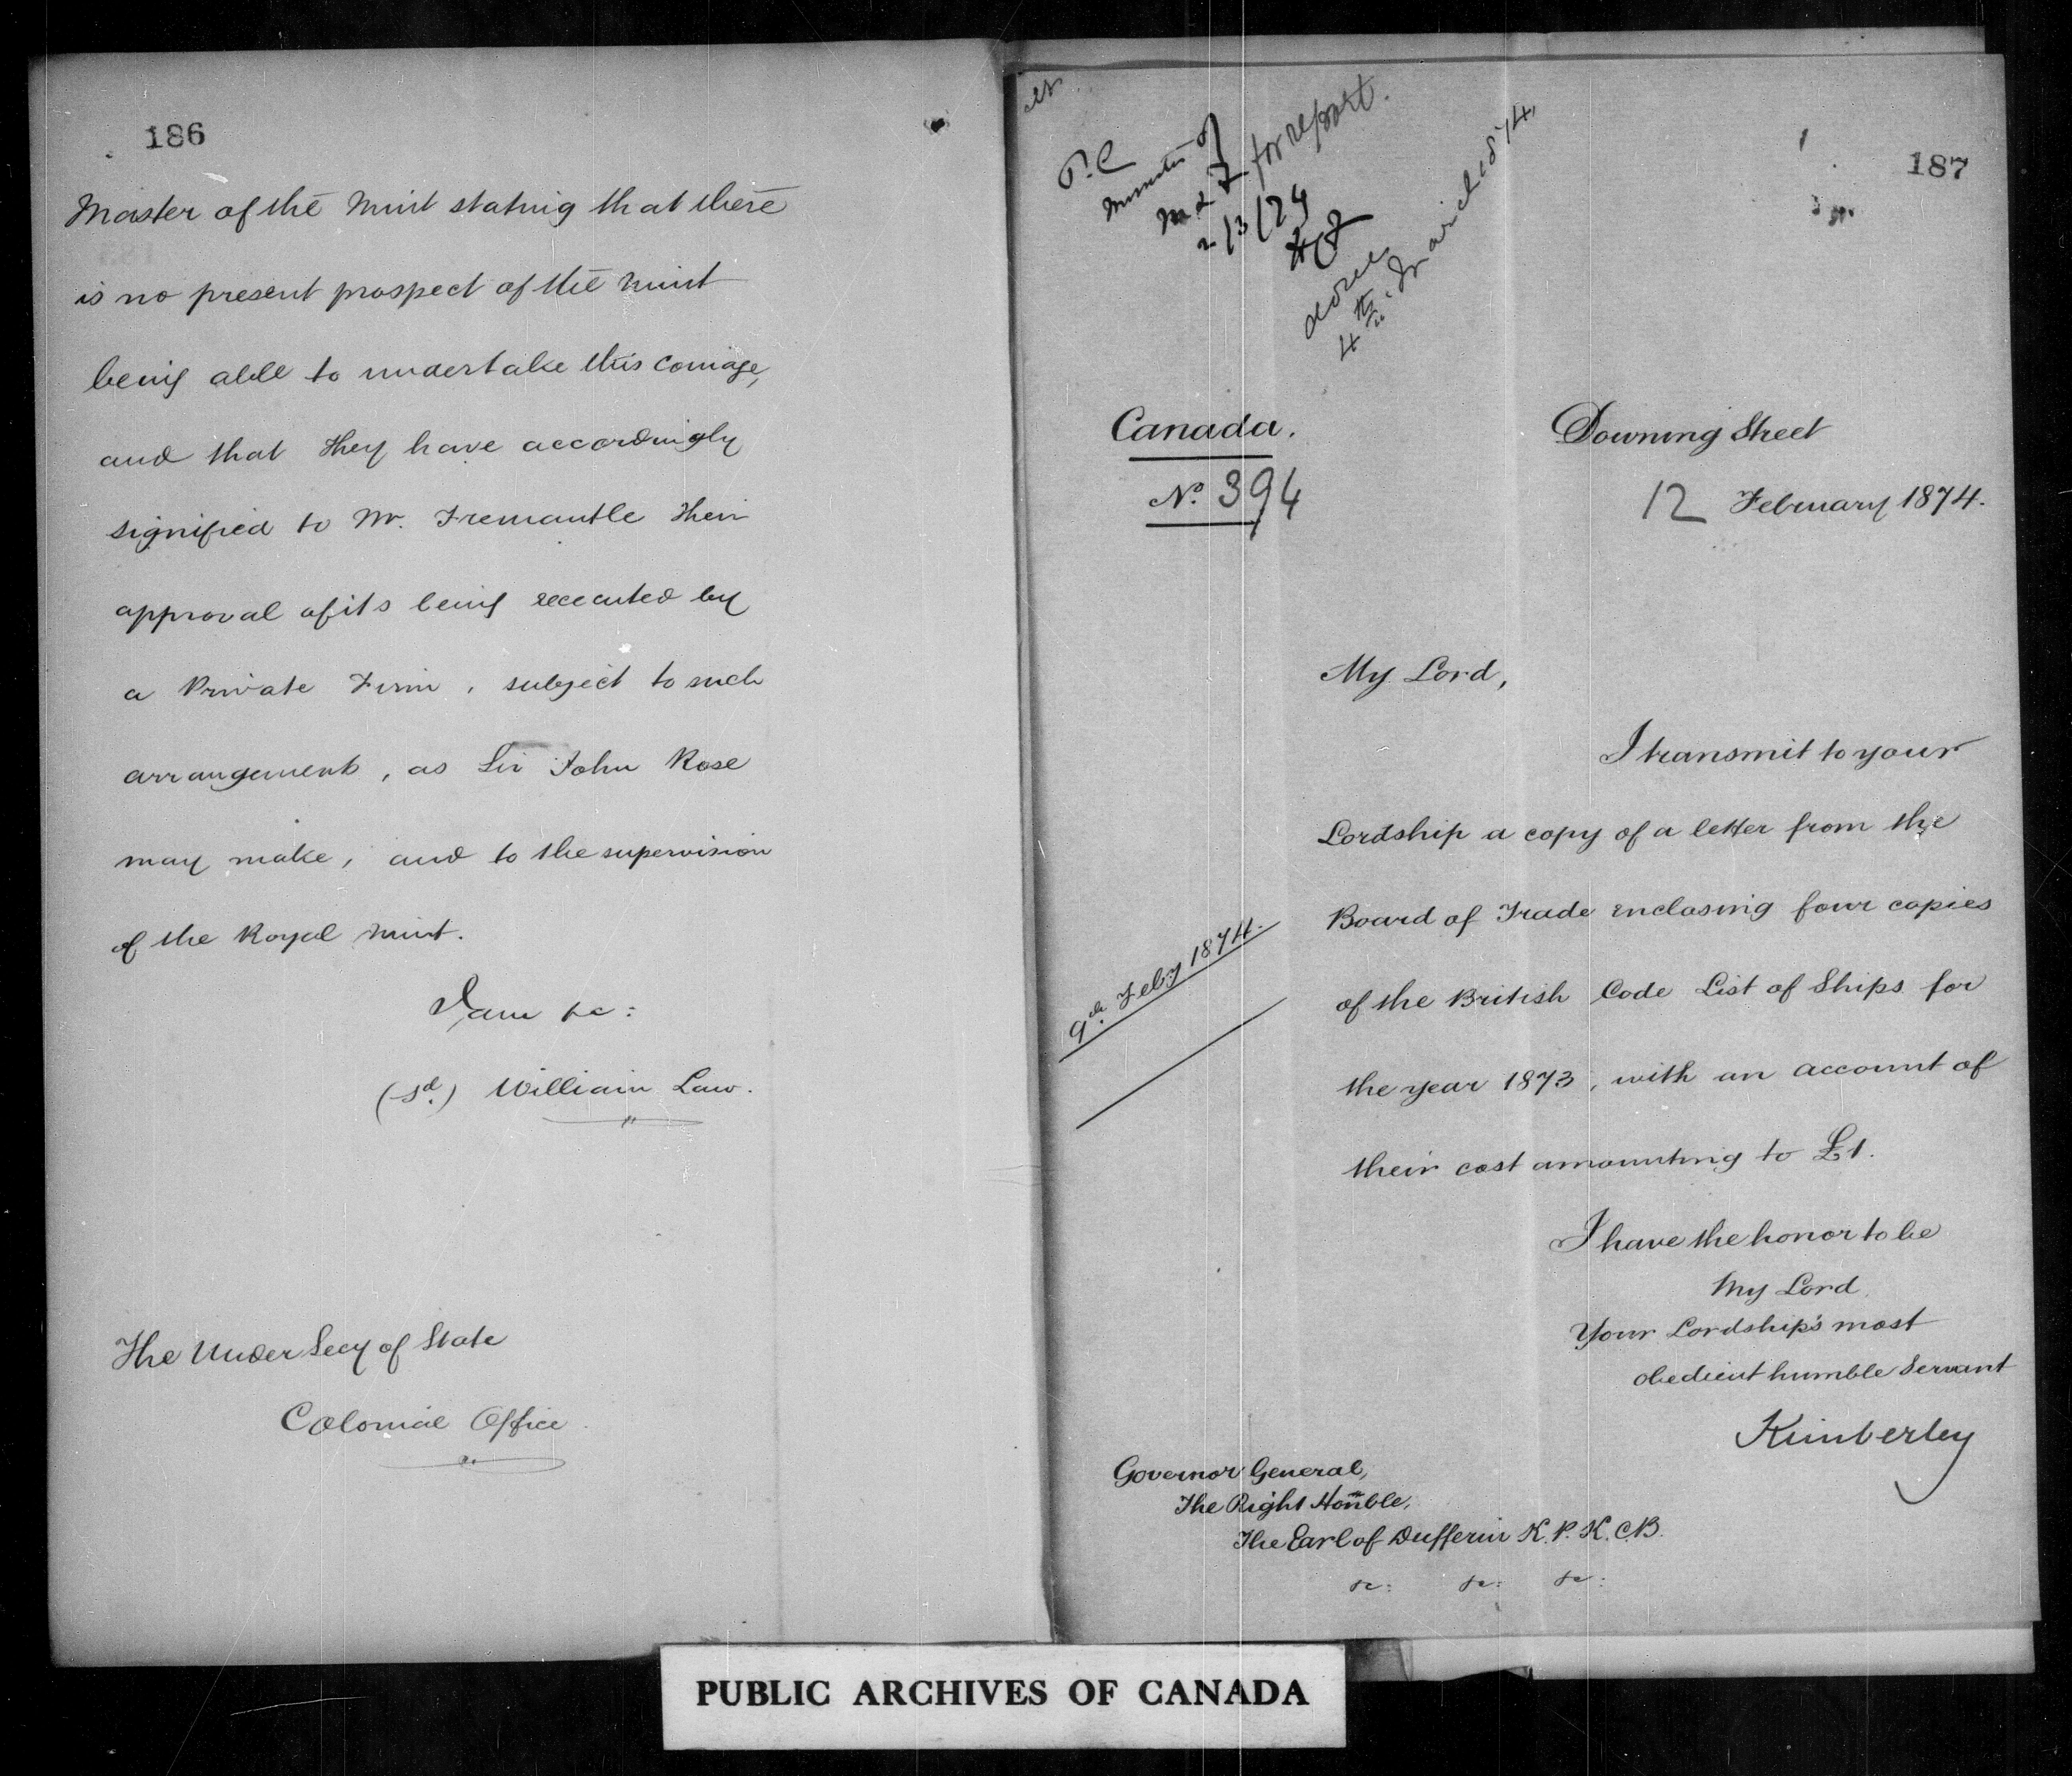 186
Master of the Mint stating that there
is no present prospect of the Mint
being able to undertake this coinage,
and that they have accordingly
signified to Mr. Fremantle their
approval of its being executed by
a Private Firm, subject to such
arrangements, as Sir John Rose
may make, and to the supervision
of the Royal Mint.
I am &c:
(sd.) William Law.
The Under Secy of State
Colonial Office
187
P.C
Minister of
M & F for report.
2/3/74
done
4th March 1874.
Canada.
No. 394
Downing Street
12 February 1874.
My Lord,
I transmit to your
Lordship a copy of a letter from the
Board of Trade enclosing four copies
9th Feby 1874.
of the British Code List of Ships for
the year 1873, with an account of
their cost amounting to £1.
I have the honor to be
My Lord
Your Lordship's most
obedient humble Servant
Kimberley
Governor General,
The Right Honble.
The Earl of Dufferin K.P. K.C.B.
&c: &c: &c:
PUBLIC ARCHIVES OF CANADA